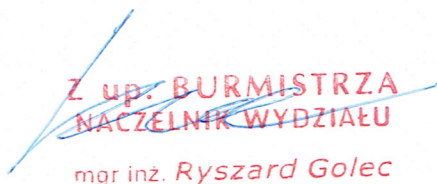 Z up. BURMISTRZA
NACZELNIK WYDZIAŁU
mgr inż. Ryszard Golec